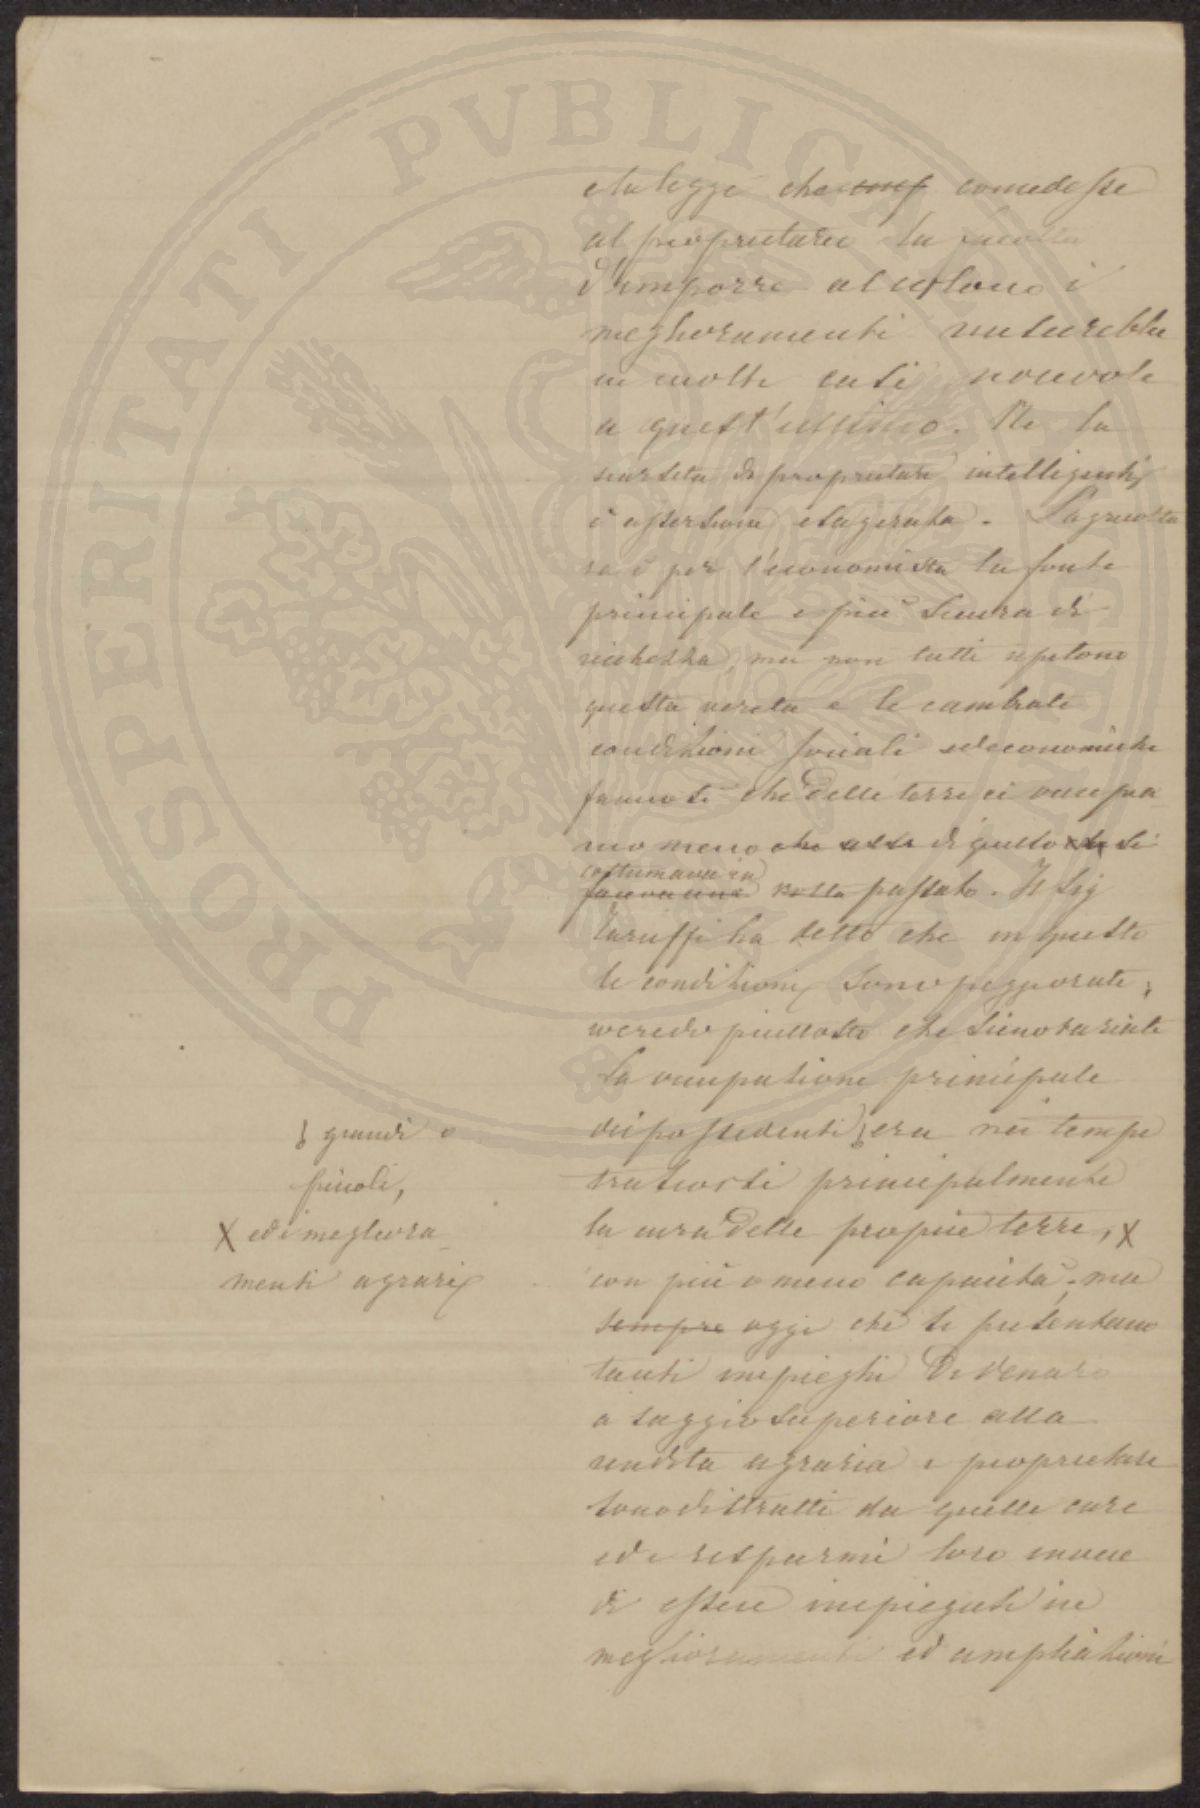 e la legge che concedesse
al proprietario la facoltà
d'imporre al colono i
meglioramenti riuscirebbe
in molti casi nocevole
a quest'ultimo. Ne la
scarsità di proprietari intelligenti
è assertione esagerata. L'agricoltu
ra è per l'economista la fonte
principale e più sicura di
ricchezza, ma non tutti repetono
questa verità e le cambiate
condizioni sociali ed economiche
fanno sì che delle terre ci occupia
mo meno che altri di quello che si
costumava in
faceva una passato. Il Sig
Taruffi ha detto che in questo
le condizioni sono peggiorate;
io credo piuttosto che sieno variate
La occupazione principale
dei possedenti era nei tempi
trascorsi principalmente
la cura delle proprie terre, X
con più o meno capacità, ma
sempre oggi che si presentano
tanti impieghi di denaro
a saggio superiore alla
rendita agraria i proprietari
sono distratti da quelle cure
ed i risparmi loro invece
di essere impiegati in
meglioramenti ed ampliazioni
grandi o
piccoli,
X ed i megliora
menti agrari
PROSPERITATI PVBLICAE